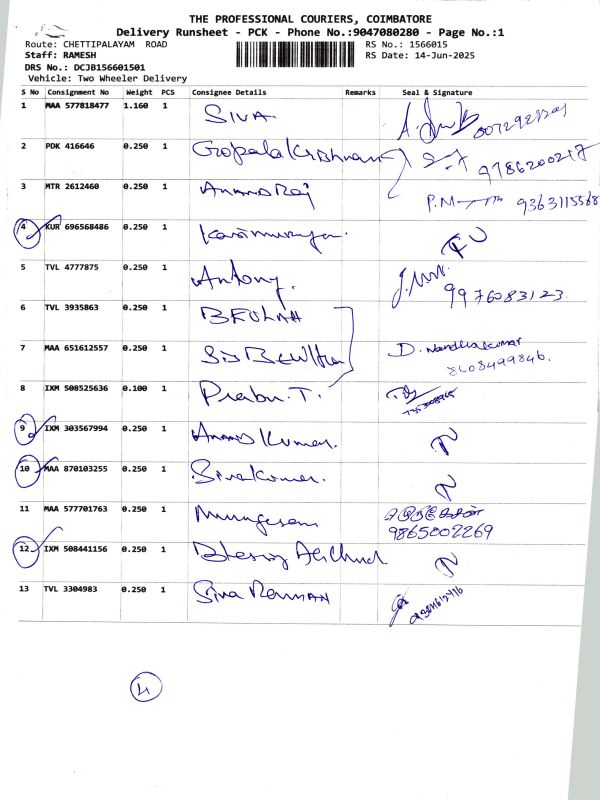 THE PROFESSIONAL COURIERS, COIMBATORE
Delivery Runsheet - PCK - Phone No.:9047080280 - Page No.:1
Route: CHETTIPALAYAM ROAD RS No.: 1566015
Staff: RAMESH RS Date: 14-Jun-2025
DRS No.: DCJB156601501
Vehicle: Two Wheeler Delivery
S No Consignment No Weight PCS Consignee Details Remarks Seal & Signature
1 MAA 577818477 1.160 1 SIVA
2 PDK 416646 0.250 1 Gopala Krishnan 9786200217
3 MTR 2612460 0.250 1 Anand Raj P.M 9363115568
4 KUR 696568486 0.250 1
5 TVL 4777875 0.250 1 Antony. 9976083123
6 TVL 3935863 0.250 1 BEULAH
7 MAA 651612557 0.250 1 D. Nandhakumar
8608499846.
8 IXM 508525636 0.100 1 Prabu. T.
9 IXM 303567994 0.250 1 Anand Kumar.
10 MAA 870103255 0.250 1 Sivakumar.
11 MAA 577701763 0.250 1 Murugesan
9865002269
12 IXM 508441156 0.250 1
13 TVL 3304983 0.250 1 Siva Raman
4